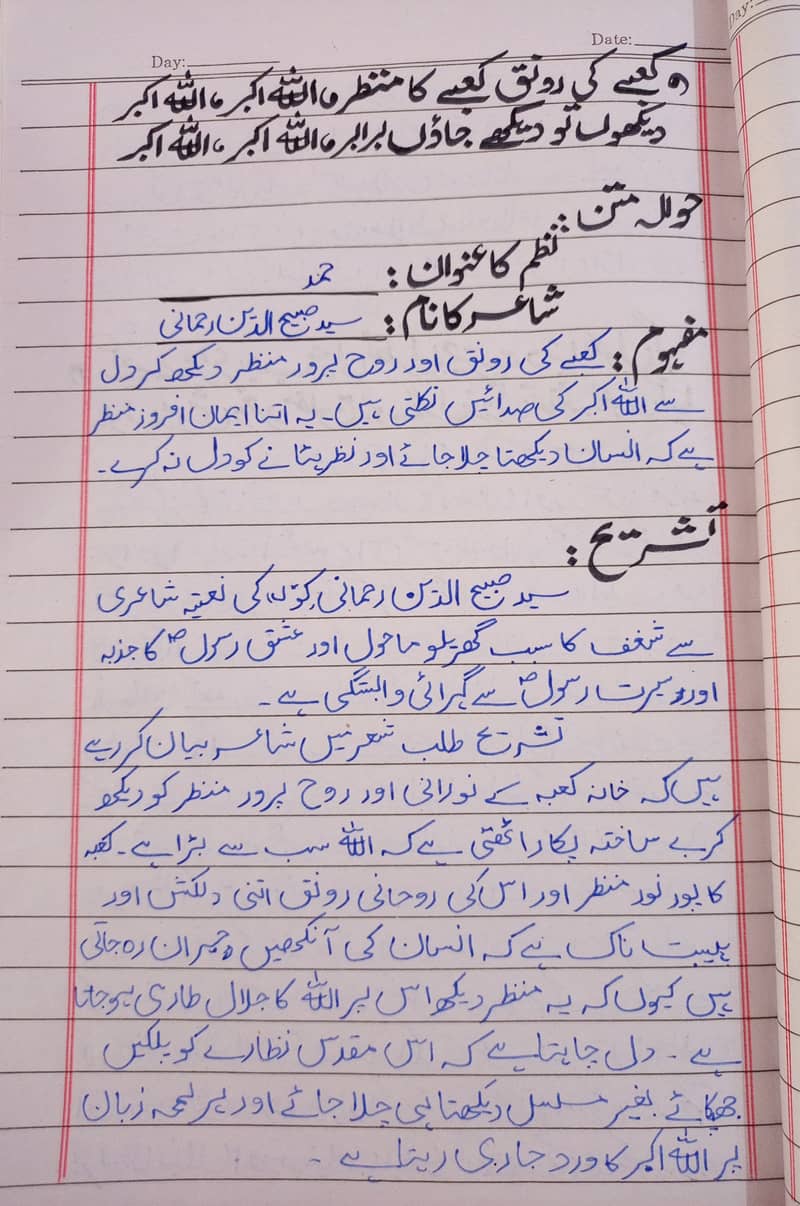 Day:
Date:
Day:
کعبے کی رونق کعبے کا منظر، اللہ اکبر، اللہ اکبر
دیکھوں تو دیکھے جاؤں برابر، اللہ اکبر، اللہ اکبر
حوالہ متن:
نظم کا عنوان: حمد
شاعر کا نام: سید صبیح الدین رحمانی
مفہوم: کعبے کی رونق اور روح پرور منظر دیکھ کر دل
سے اللہ اکبر کی صدائیں نکلتی ہیں۔ یہ اتنا ایمان افروز منظر
ہے کہ انسان دیکھتا چلا جائے اور نظر ہٹانے کو دل نہ کرے۔
تشریح:
سید صبیح الدین رحمانی کی نعتیہ شاعری
سے شغف کا سبب گھریلو ماحول اور عشق رسولؐ کا جذبہ
اور سیرت رسولؐ سے گہرائی وابستگی ہے۔
تشریح طلب شعر میں شاعر بیان کر رہے
ہیں کہ خانہ کعبہ کے نورانی اور روح پرور منظر کو دیکھ
کر بے ساختہ پکار اٹھتی ہے کہ اللہ سب سے بڑا ہے۔ کعبہ
کا پور نور منظر اور اس کی روحانی رونق اتنی دلکش اور
ہیبت ناک ہے کہ انسان کی آنکھیں حیران رہ جاتی
ہیں کیوں کہ یہ منظر دیکھ اس پر اللہ کا جلال طاری ہو جاتا
ہے۔ دل چاہتا ہے کہ اس مقدس نظارے کو پلکیں
جھپکائے بغیر مسلسل دیکھتا ہی چلا جائے اور ہر لمحہ زبان
پر اللہ اکبر کا ورد جاری رہتا ہے۔